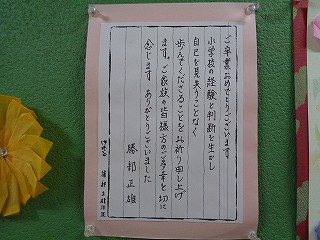 ご卒業おめでとうございます
小学校の経験と判断を生かし
自己を見失うことなく
歩んでくださることをお祈り申し上げ
ます。ご家族の皆様方のご多幸を切に
念じます ありがとうございました
勝部 正雄